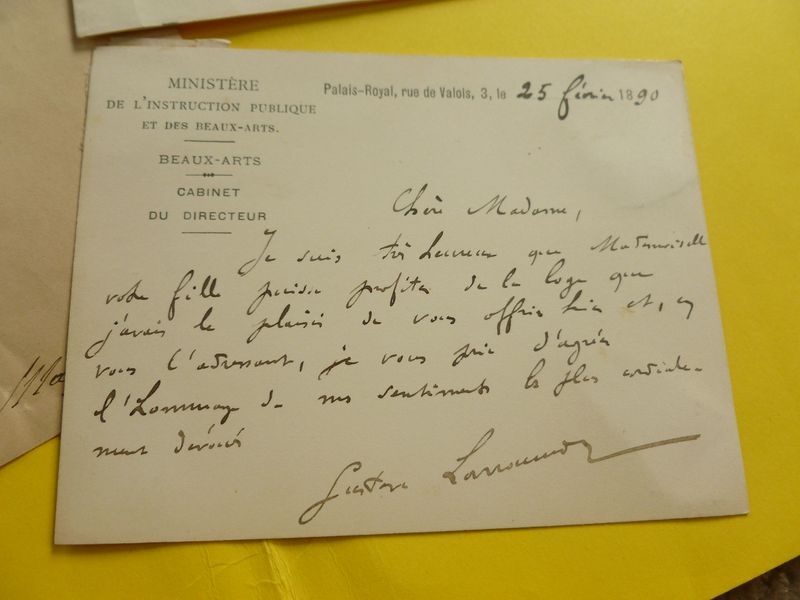 MINISTÈRE
DE L'INSTRUCTION PUBLIQUE
ET DES BEAUX-ARTS.
BEAUX-ARTS
CABINET
DU DIRECTEUR
Palais-Royal, rue de Valois, 3, le 25 février 1890
Chère Madame,
Je suis très heureux que Mademoiselle
votre fille puisse profiter de la loge que
j'avais le plaisir de vous offrir hier et, en
vous l'adressant, je vous prie d'agréer
l'hommage de mes sentiments les plus cordiale-
ment dévoués
Gustave Larroumet